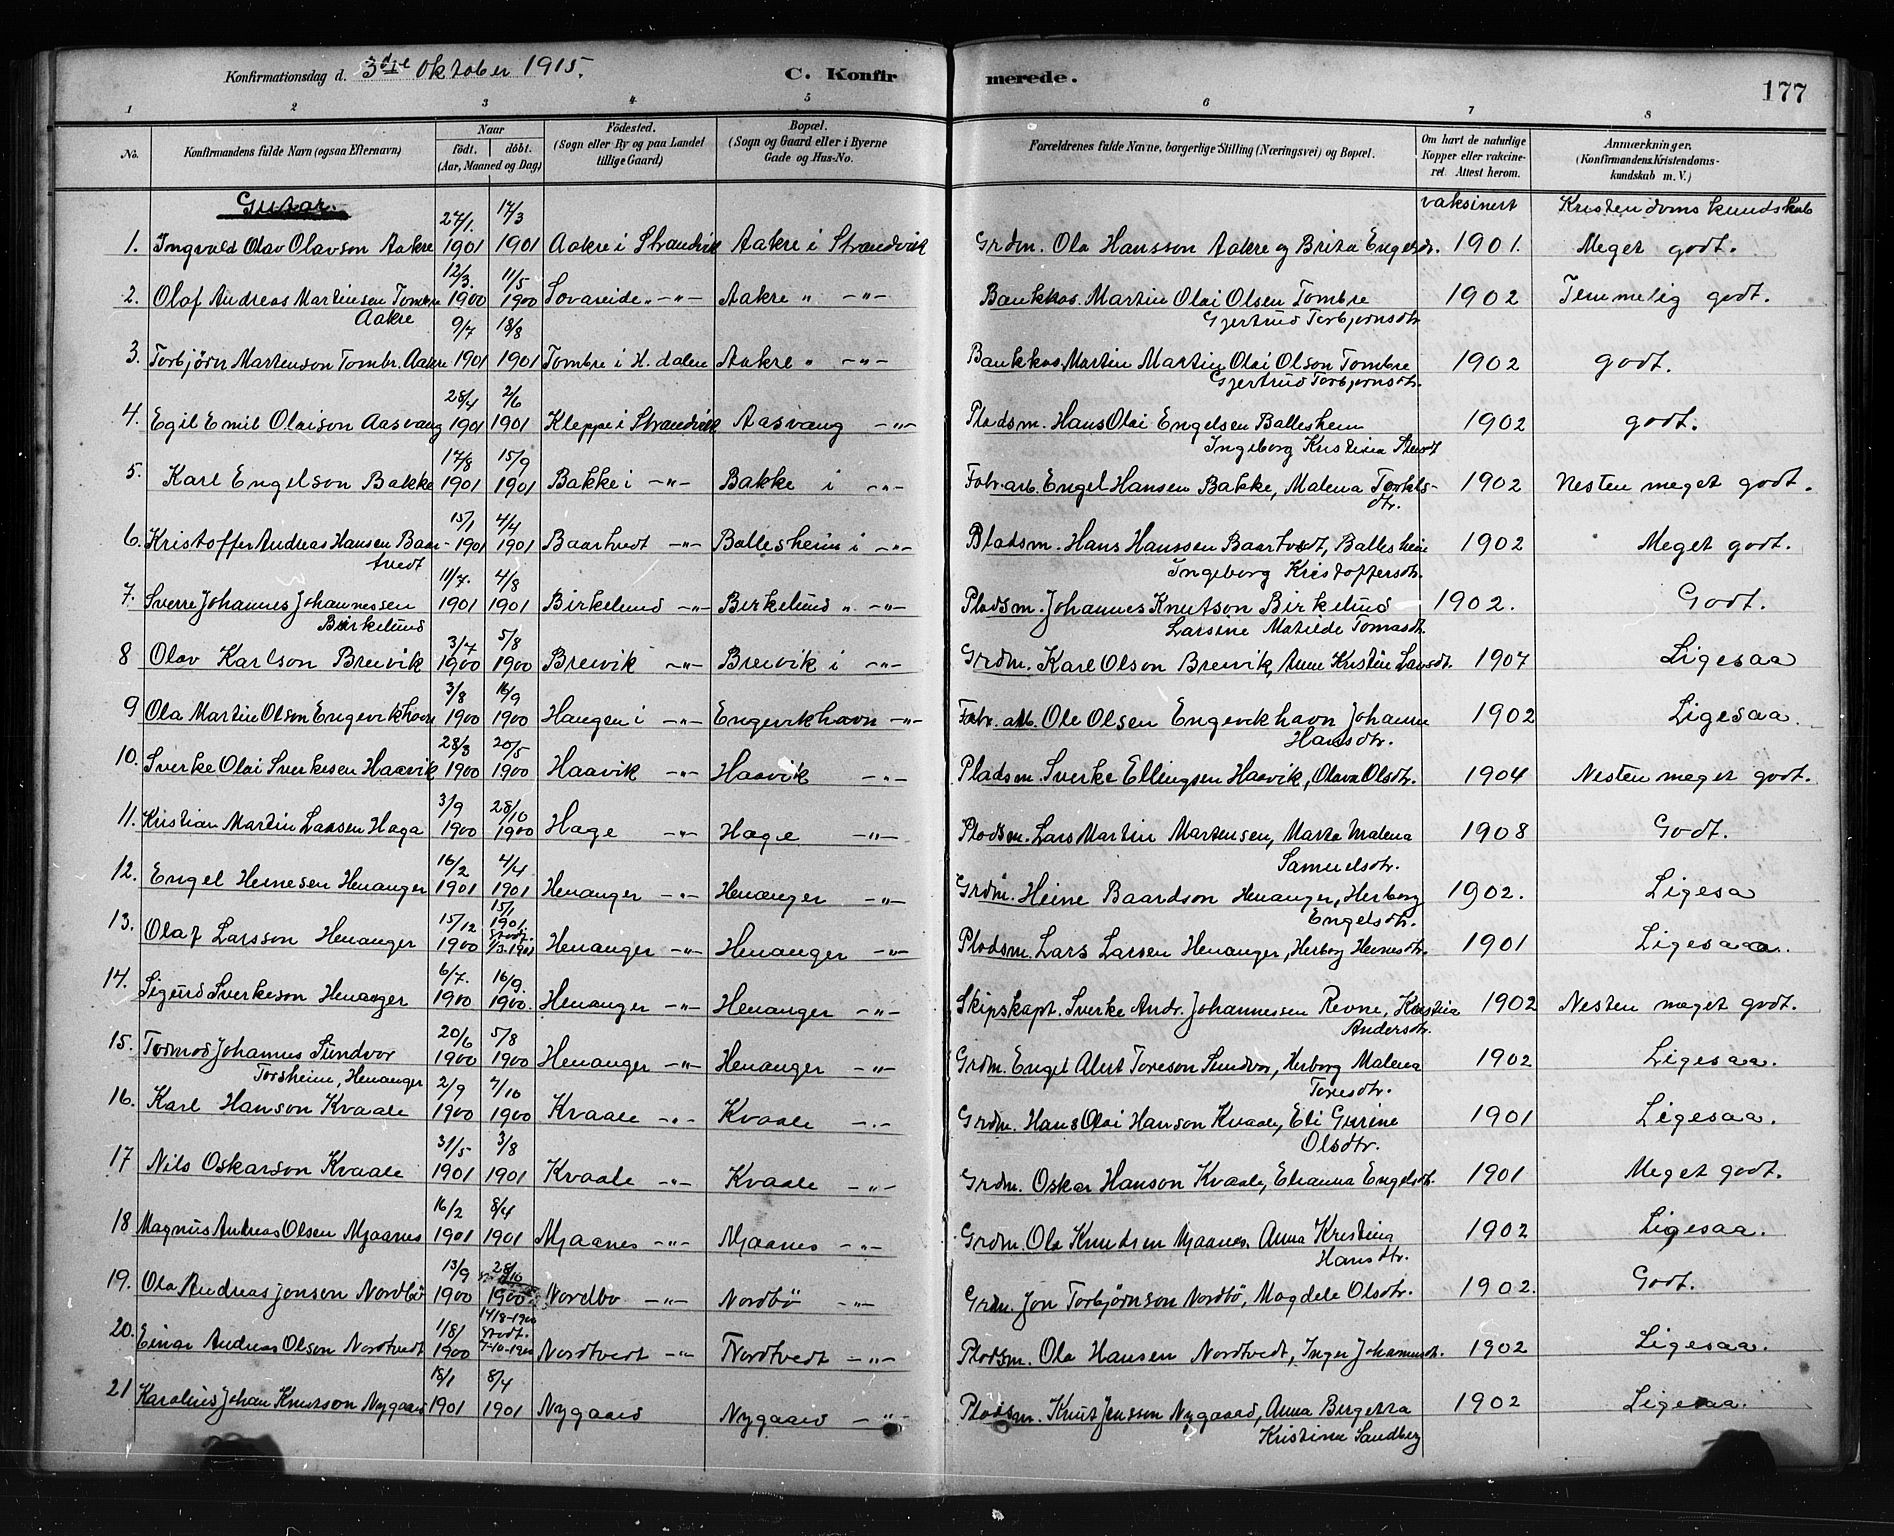 Konfirmationsdag d. 3die Oktober 1915. C. Konfirmerede. 177
1 2 3 4 5 6 7 8
No. Konfirmandens fulde Navn (ogsaa Efternavn) Naar födt. döbt. (Aar, Maaned og Dag) Födested. (Sogn eller By og paa Landet tillige Gaard) Bopæl. (Sogn og Gaard eller i Byerne Gade og Hus-No. Forældrenes fulde Navne, borgerlige Stilling (Næringsvei) og Bopæl. Om havt de naturlige Kopper eller vakcineret. Attest herom. Anmærkninger. (Konfirmandens Kristendomskundskab m. V.)
Gutar. vaksinert Kristendomskundskab
1. Ingvald Olav Olavson Aakre 27/1. 1901 17/3 1901 Aakre i Strandvik Aakre i Strandvik Grdm. Ola Hansson Aakre og Brita Engelsdr. 1901. Meget godt.
2. Olaf Andreas Martinsen Tombre Aakre 12/3. 1900 11/5 1900 Sovareide " -"- Aakre " -"- Bankkas. Martin Olai Olsen Tombre Gjertrud Torbjørnsdtr 1902 Temmelig godt.
3. Torbjørn Martenson Tombr. Aakre 9/7 1901 18/8 1901 Tombre i H. dalen Aakre " -"- Bankkas. Martin Martin Olai Olson Tombre Gjertrud Torbjørnsdtr. 1902 godt.
4. Egil Emil Olaison Aasvang 28/4 1901 2/6 1901 Kleppe i Strandvik Aasvang -"- Pladsm. Hans Olai Engelsen Ballesheim Ingeborg Kristina 1902 godt.
5. Karl Engelson Bakke 17/8 1901 15/9 1901 Bakke i -"- Bakke i -"- Fabr. arb. Engel Hansen Bakke, Malena Torkelsdtr. 1902 Nesten meget godt.
6. Kristoffer Andreas Hansen Baartvedt 15/1 1901 4/4 1901 Baartvedt -"- Ballesheim i -"- Pladsm. Hans Hanssen Baartvedt, Ballesheim Ingeborg Kristoffersdr. 1902 Meget godt.
7. Sverre Johannes Johannessen Birkelund 11/7. 1901 4/8 1901 Birkelund -"- Birkelund " -"- Pladsm. Johannes Knutson Birkelund Larsine Matilde Tomasdt. 1902. Godt.
8 Olav Karlson Breivik 3/7 1900 5/8 1900 Breivik -"- Breivik i -"- Grdm. Karl Olson Breivik, Anne Kristin Larsdt. 1907 Ligesaa
9 Ola Martin Olson Engevikhavn 3/8 1900 16/9 1900 Haugen i -"- Engevikhavn -"- Fabr. arb. Ole Olsen Engevikhavn Johanne Hansdtr. 1902 Ligesaa.
10. Sverke Olai Sverkesen Haavik 28/3 1900 20/5 1900 Haavik -"- Haavik -"- Pladsm. Sverke Ellingsen Haavik, Olava Olsdtr. 1904 Nesten meget godt.
11. Kristian Martin Larsen Haga 3/9 1900 28/10 1900 Hage -"- Hage -"- Pladsm. Lars Martin Martensen, Marta Malena Samuelsdtr. 1908 Godt.
12. Engel Heinesen Henanger 16/2 1901 4/4 1901 Henanger -"- Henanger -"- Grdm. Heine Baardson Henanger, Herborg Engelsdtr. 1902. Ligesa
13. Olaf Larsson Henanger 15/12 1900 15/1 1901, stadf. 1/3-1901 Henanger -"- Henanger -"- Pladsm. Lars Larsen Henanger, Herborg Heinesdtr. 1901 Ligesaa.
14. Sigurd Sverkeson Henanger 6/7. 1900 16/9. 1900. Henanger -"- Henanger -"- Skipskapt. Sverke Andr. Johannessen Revne, Kristina Andersdtr. 1902 Nesten meget godt.
15. Tormod Johannes Sundvor Torsheim, Henanger 20/6 1900 5/8 1900 Henanger -"- Henanger -"- Grdm. Engel Alert Toreson Sundvor, Herborg Malena Toresdtr. 1902 Ligesaa.
16. Karl Hanson Kvaale 2/9 1900 7/10 1900 Kvaale -"- Kvaale -"- Grdm. Hans Olai Hanson Kvaale, Eli Gurine Olsdtr. 1901 Ligesaa.
17 Nils Oskarson Kvaale 31/5 1901 3/8 1901 Kvaale -"- Kvaale -"- Grdm. Oskar Hanson Kvaale, Elianna Engelsdtr. 1901 Meget godt.
18 Magnus Andreas Olsen Mjaanes 16/2 1901 8/4 1901 Mjaanes -"- Mjaanes -"- Grdm. Ola Knudsen Mjaanes, Anna Kristina Hansdtr. 1902 Ligesaa.
19. Ola Andreas Jonson Nordbø 13/9 1900 28/10 1900 Nordbø -"- Nordbö -"- Grdm. Jon Torbjørnson Nordbö, Magdele Olsdtr. 1902. Godt.
20. Einar Andreas Olson Nordtvedt 1/8/ 1900 14/8-1900 stadf. 7-10-1900 Nordtvedt -"- Nordtvedt -"- Pladsm. Ola Hansen Nordtvedt, Inger Johannesdt. 1902 Ligesaa.
21 Karolius Johan Knutson Nygaard 18/1 1901 8/4 1901 Nygaard Nygaard -"- Pladsm. Knut Jenssen Nygaard, Anna Bergetta Kristine Sandberg 1902 Ligesaa.